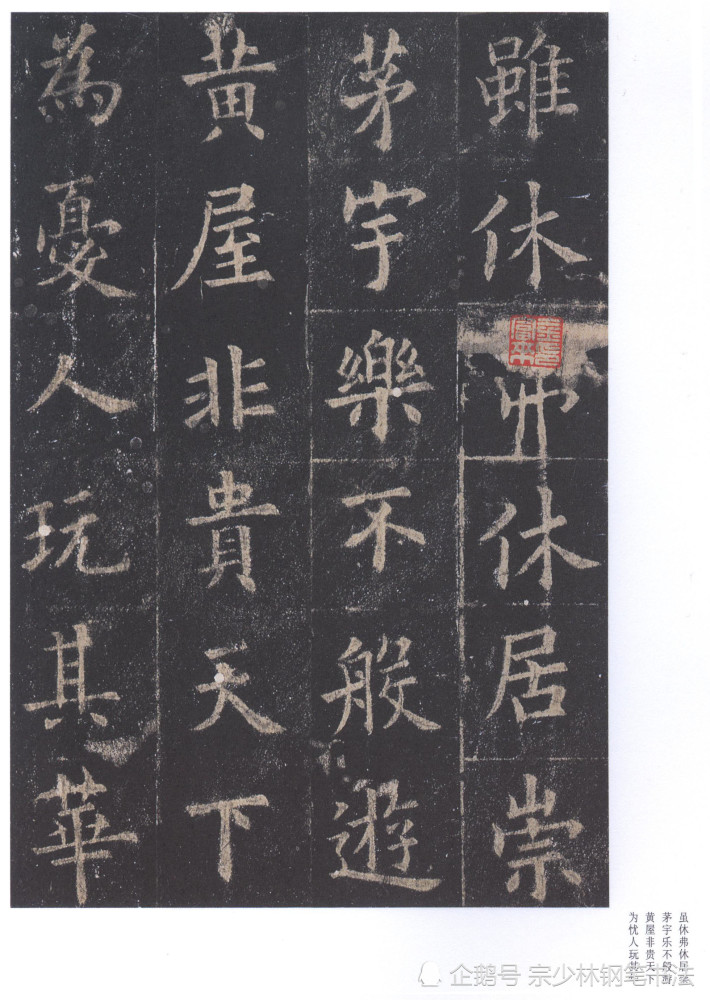 雖休弗休居崇
茅宇樂不般遊
黃屋非貴天下
為憂人玩其華
虽休弗休居
茅宇乐不般游
黄屋非贵天下
为忧人玩其
企鹅号 宗少林钢笔书法